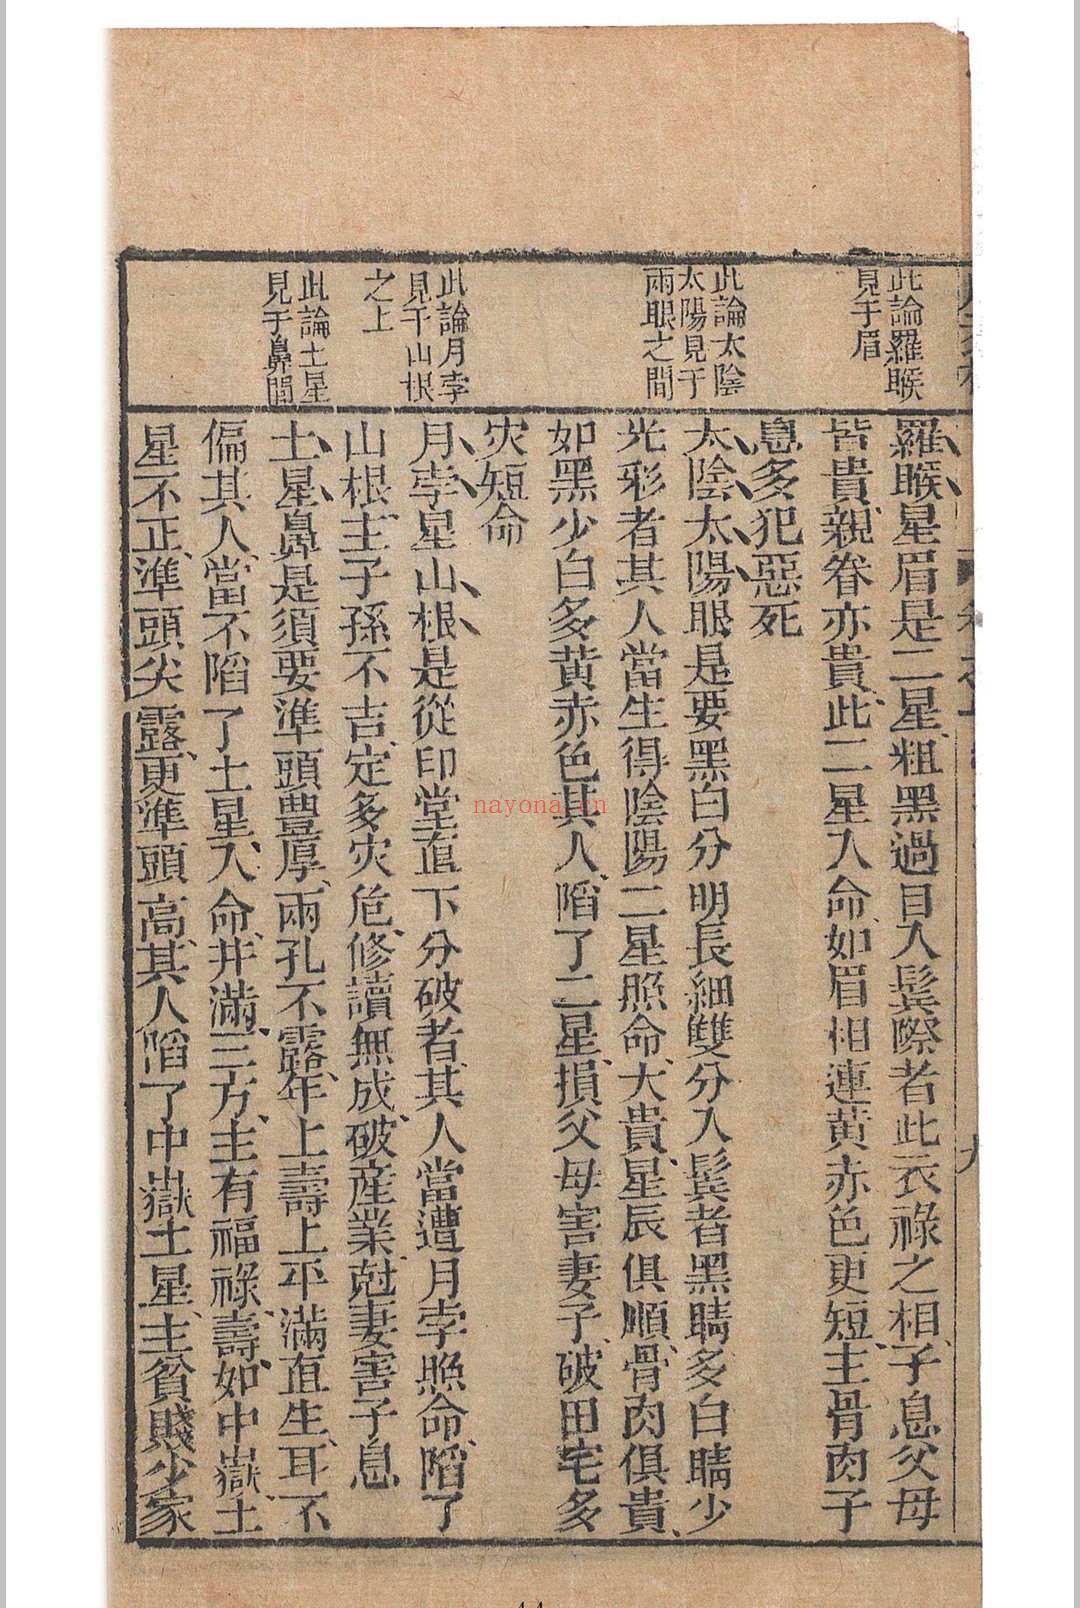 此論羅睺
見于眉
此論太陰
太陽見于
兩眼之間
此論月孛
見于山根
之上
此論土星
見于鼻間
羅睺星眉是二星粗黑過目入鬂際者此衣祿之相子息父母
皆貴親眷亦貴此二星入命如眉相連黄赤色更短主骨肉子
息多犯惡死
太陰太陽眼是要黑白分明長細雙分入鬂者黑睛多白睛少
光彩者其人當生得陰陽二星照命大貴星辰俱順骨肉俱貴
如黑少白多黄赤色其人陷了二星損父母害妻子破田宅多
灾短命
月孛星山根是從印堂直下分破者其人當遭月孛照命陷了
山根主子孫不吉定多灾危修讀無成破産業尅妻害子息
土星鼻是須要準頭豊厚兩孔不露年上壽上平滿直生耳不
偏其人當不陷了土星入命井滿三方主有福祿壽如中嶽土
星不正準頭尖露更準頭高其人陷了中嶽土星主貧賤少家
nayona.cn